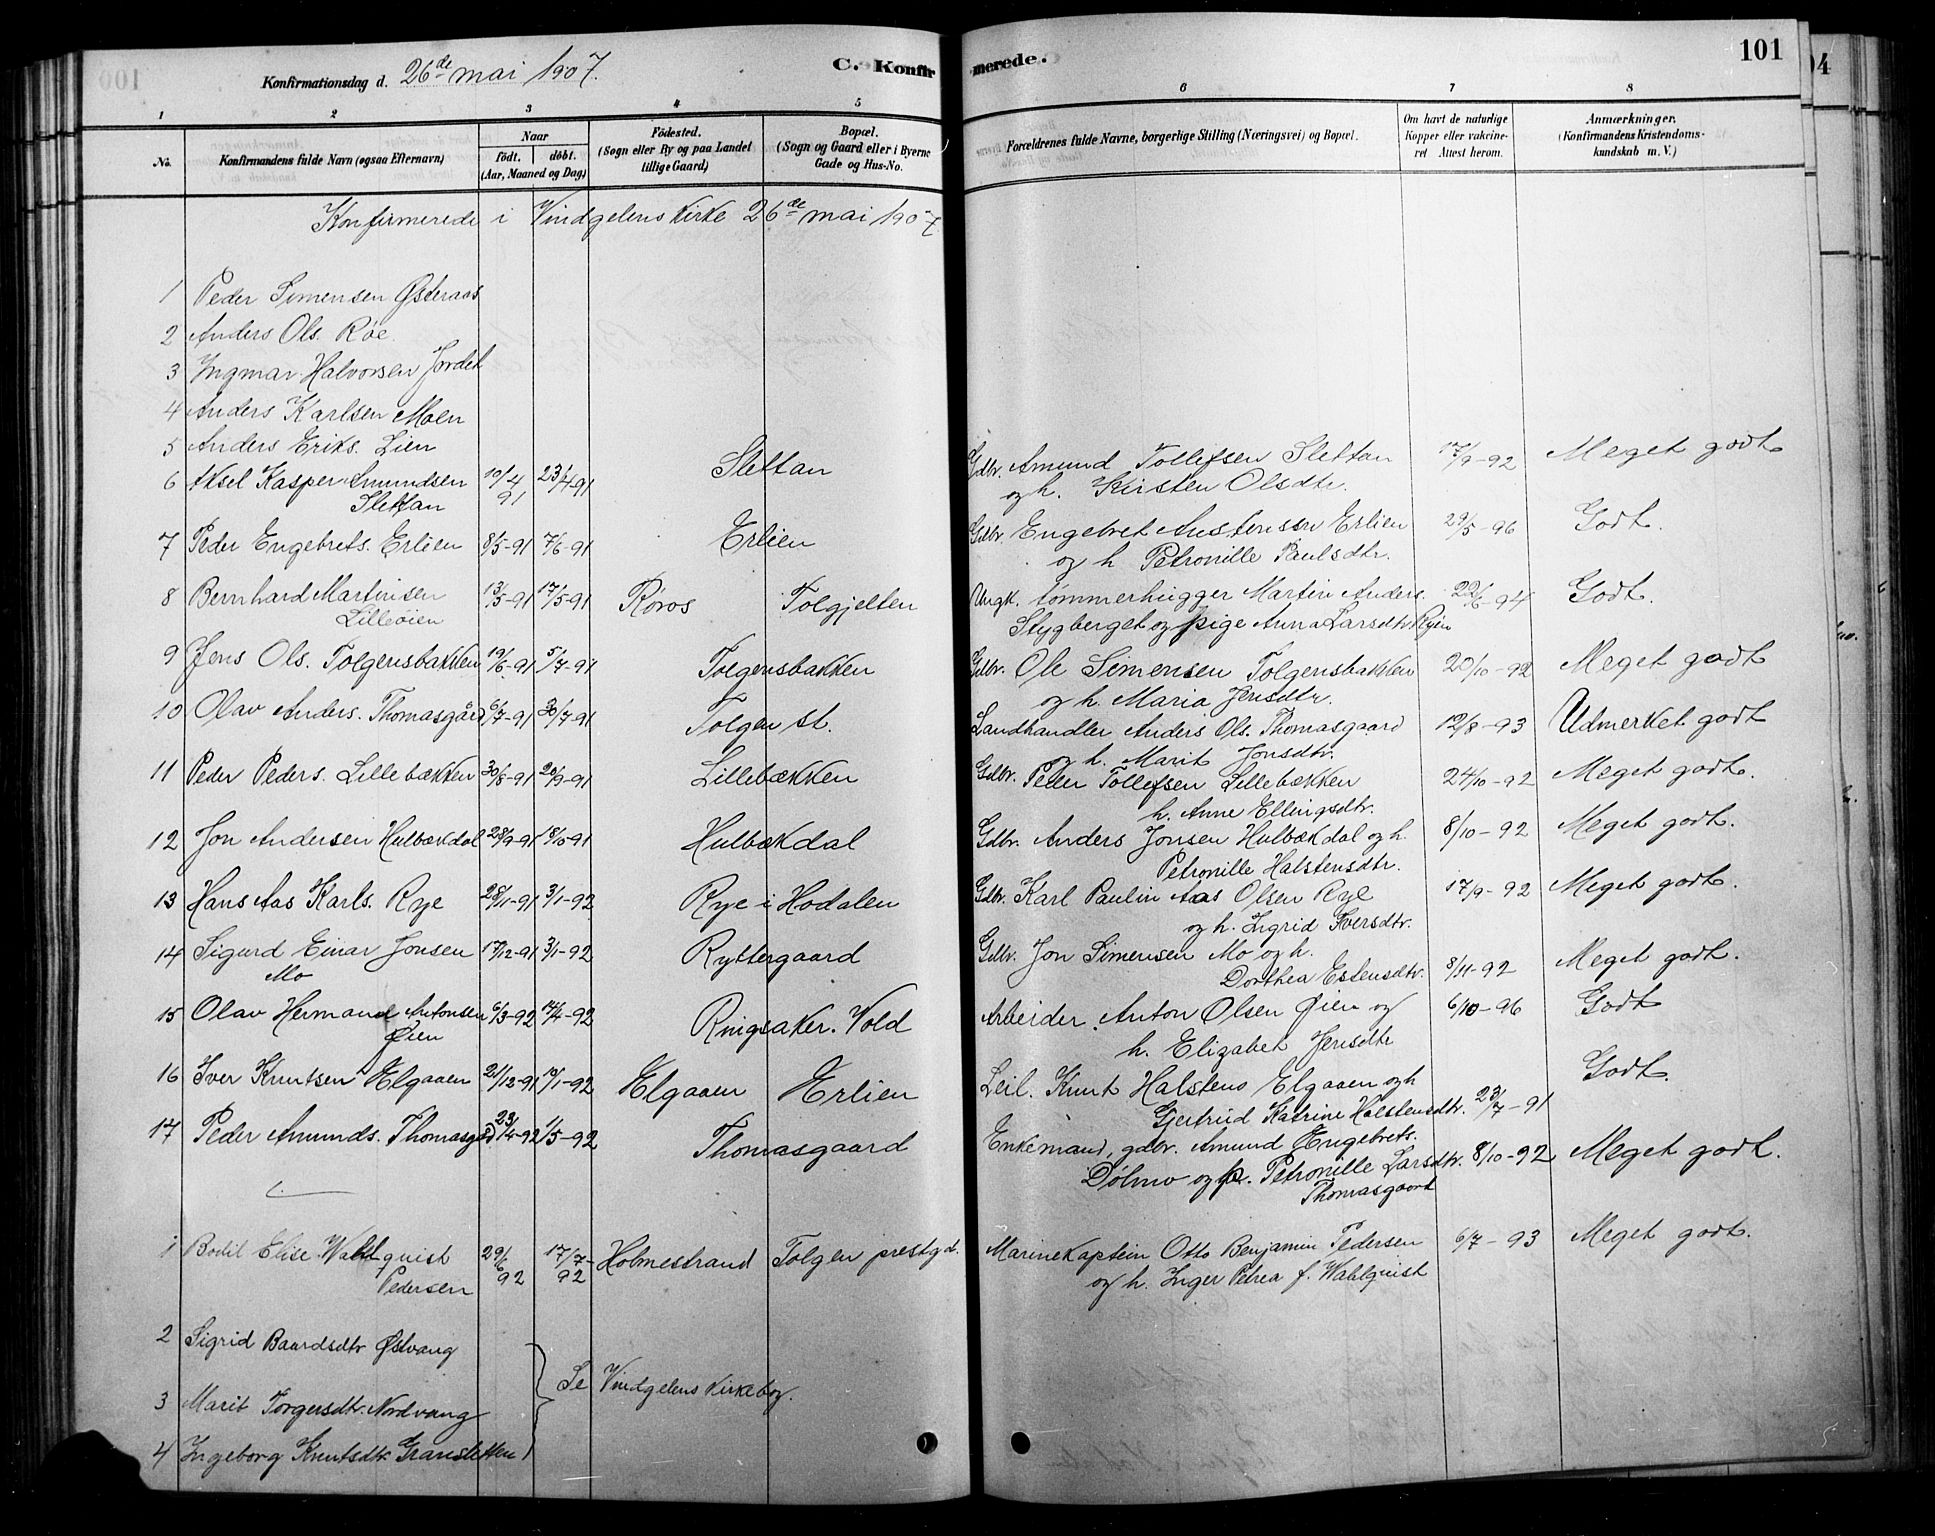 100
Konfirmationsdag d. 26de mai 1907.
C. Konfirmerede.
101
04
1 2 3 4 5 6 7 8
No.
Konfirmandens fulde Navn (ogsaa Efternavn)
Naar
født. døbt.
(Aar, Maaned og Dag)
Fødested.
(Sogn eller By og paa Landet
tillige Gaard)
Bopæl.
(Sogn og Gaard eller i Byerne
Gade og Hus-No.
Forældrenes fulde Navne, borgerlige Stilling (Næringsvei) og Bopæl.
Om havt de naturlige
Kopper eller vakcine-
ret Attest herom.
Anmærkninger.
(Konfirmandens Kristendoms-
kundskab m. V.)
Konfirmerede i Vindgelens kirke 26de mai 1907
1 Peder Simensen Østeraas
2 Anders Ols. Røe
3 Ingmar Halvorsen Jordet
4 Anders Karlsen Moen
5 Anders Eriks. Lien
6 Aksel Kasper Amundsen 10/4 23/4-91 Slettan Gdbr. Amund Tollefsen Slettan 17/9-92 Meget godt
Slettan 91 og h. Kirsten Olsdtr.
7 Peder Engebrets. Erlien 8/5-91 7/6-91 Erlien Gdbr. Engebret Austensen Erlien 29/5-96 Godt.
og h Petronille Paulsdtr.
8 Bernhard Martinsen 13/5-91 17/5-91 Røros Tolgjelten Ungk. tømmerhugger Martin Anders. 22/6-94 Godt.
Lilleøien Stygberget og pige Anna Larsdtr Ryen
9 Jens Ols. Tolgensbakken 19/6-91 5/7-91 Tolgensbakken Gdbr. Ole Simensen Tolgensbakken 20/10-92 Meget godt
og h. Maria Jensdtr.
10 Olav Anders. Thomasgård 6/7-91 30/7-91 Tolgen st. Landhandler Anders Ols. Thomasgaard 12/8-93 Udmerket godt
og h. Marit Jonsdtr.
11 Peder Peders. Lillebækken 30/8-91 20/9-91 Lillebækken Gdbr. Peder Tollefsen Lillebækken 24/10-92 Meget godt.
h. Anne Ellingsdtr.
12 Jon Andersen Hulbækdal 28/9-91 18/10-91 Hulbækdal Gdbr. Anders Jonsen Hulbækdal og h. 8/10-92 Meget godt.
Petronille Halstensdtr.
13 Hans Aas Karls. Rye 28/11-91 3/1-92 Rye i Hodalen Gdbr. Karl Paulin Aas Olsen Rye 17/9-92 Meget godt.
og h. Ingrid Iversdtr.
14 Sigurd Einar Jonsen 17/12-91 3/1-92 Ryttergaard Gdbr. Jon Simensen Mo og h. 8/11-92 Meget godt.
Mo Dorthea Estensdtr.
15 Olav Hermand Antonsen 6/3-92 14/4-92 Ringsaker. Vold Arbeider. Anton Olsen Øien og 6/10-96 Godt
Øien h. Elizabet Jensdtr
16 Iver Knutsen Elgaaen 21/12-91 10/1-92 Elgaaen Erlien Leil. Knut Halstens Elgaaen og h Godt.
Gjertrud Katrine Halstensdtr. 23/7-91
17 Peder Amunds. Thomasgård 23/4-92 1/5-92 Thomasgaard Enkemand, gdbr. Amund Engebrets.
Dølmo og p. Petronille Larsdtr. 8/10-92 Meget godt.
Thomasgaard
1 Bodil Elise Wahlquist 29/6 17/7- Holmestrand Tolgen prestgd. Marinekaptein Otto Benjamin Pedersen 6/7-93 Meget godt.
Pedersen 92 92 og h. Inger Petrea f. Wahlquist
2 Sigrid Baardsdtr Østvang
Se Vindgelens kirkebog.
3 Marit Torgersdtr. Nordvang
4 Ingeborg Knutsdtr. Gransletten